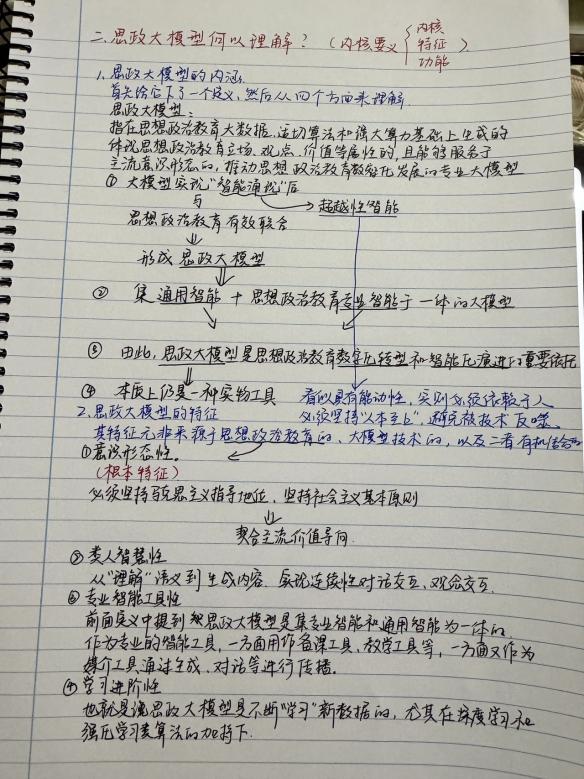 二.思政大模型何以理解？（内核要义{内核 特征 功能）
1.思政大模型的内涵：
首先给它下了一个定义，然后从四个方面来理解
思政大模型：
指在思想政治教育大数据、适切算法和强大算力基础上生成的
体现思想政治教育立场、观点、价值等属性的，且能够服务于
主流意识形态的，推动思想政治教育数智化发展的专业大模型
① 大模型实现“智能涌现”后
与 → 超越性智能
思想政治教育有效联合
⇓
形成思政大模型
② 集通用智能＋思想政治教育专业智能于一体的大模型
③ 因此，思政大模型是思想政治教育数字化转型和智能化演进的重要依托
④ 本质上仍是一种实物工具 看似具有能动性，实则必须依赖于人
必须坚持“以人为上”，避免被技术反噬。
2.思政大模型的特征
其特征无非来源于思想政治教育的、大模型技术的，以及二者有机结合的
①意识形态性。
（根本特征）
必须坚持马克思主义指导地位，坚持社会主义基本原则
⇓
契合主流价值导向.
② 类人智慧性
从“理解”语义到生成内容.实现连续性对话交互、观念交互.
③ 专业智能工具性
前面定义中提到思政大模型是集专业智能和通用智能为一体的
作为专业的智能工具，一方面用作备课工具、教学工具等，一方面又作为
媒介工具通过生成、对话等进行传播。
④ 学习进阶性
也就是说思政大模型是不断“学习”新数据的，尤其在深度学习和
强化学习类算法的加持下.